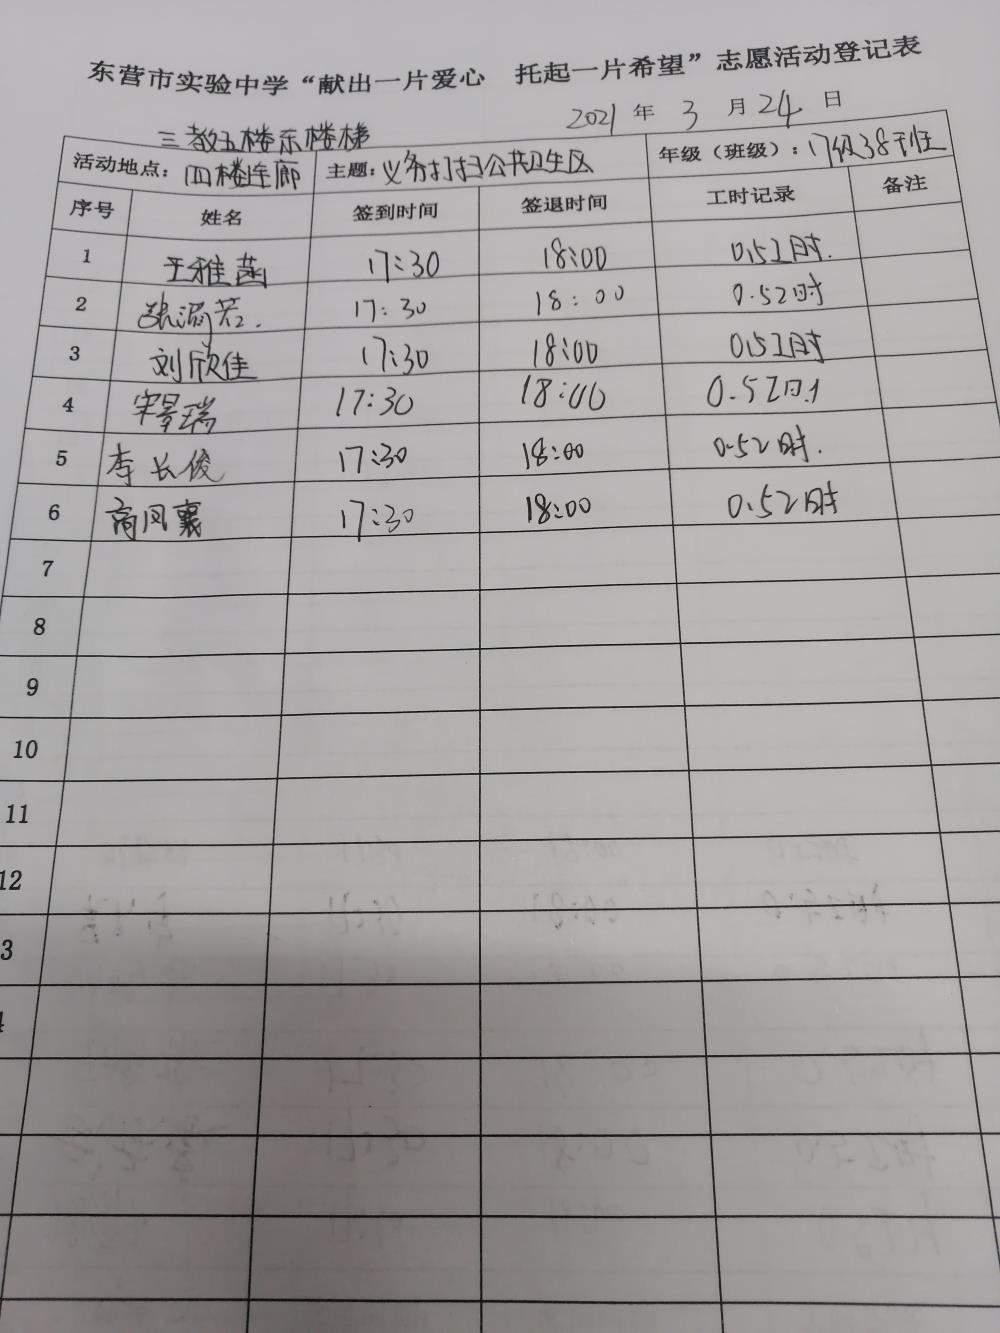 东营市实验中学“献出一片爱心 托起一片希望”志愿活动登记表
2021 年 3 月 24 日
三教五楼东楼梯
活动地点: 四楼连廊 主题: 义务打扫公共卫生区 年级（班级）: 17级38班
序号 姓名 签到时间 签退时间 工时记录 备注
1 王雅菡 17:30 18:00 0.5工时.
2 张 若. 17:30 18:00 0.5工时
3 刘欣佳 17:30 18:00 0.5工时
4 宋景瑞 17:30 18:00 0.5工时
5 李长俊 17:30 18:00 0.5工时.
6 高凤襄 17:30 18:00 0.5工时
7
8
9
10
11
12
3
4